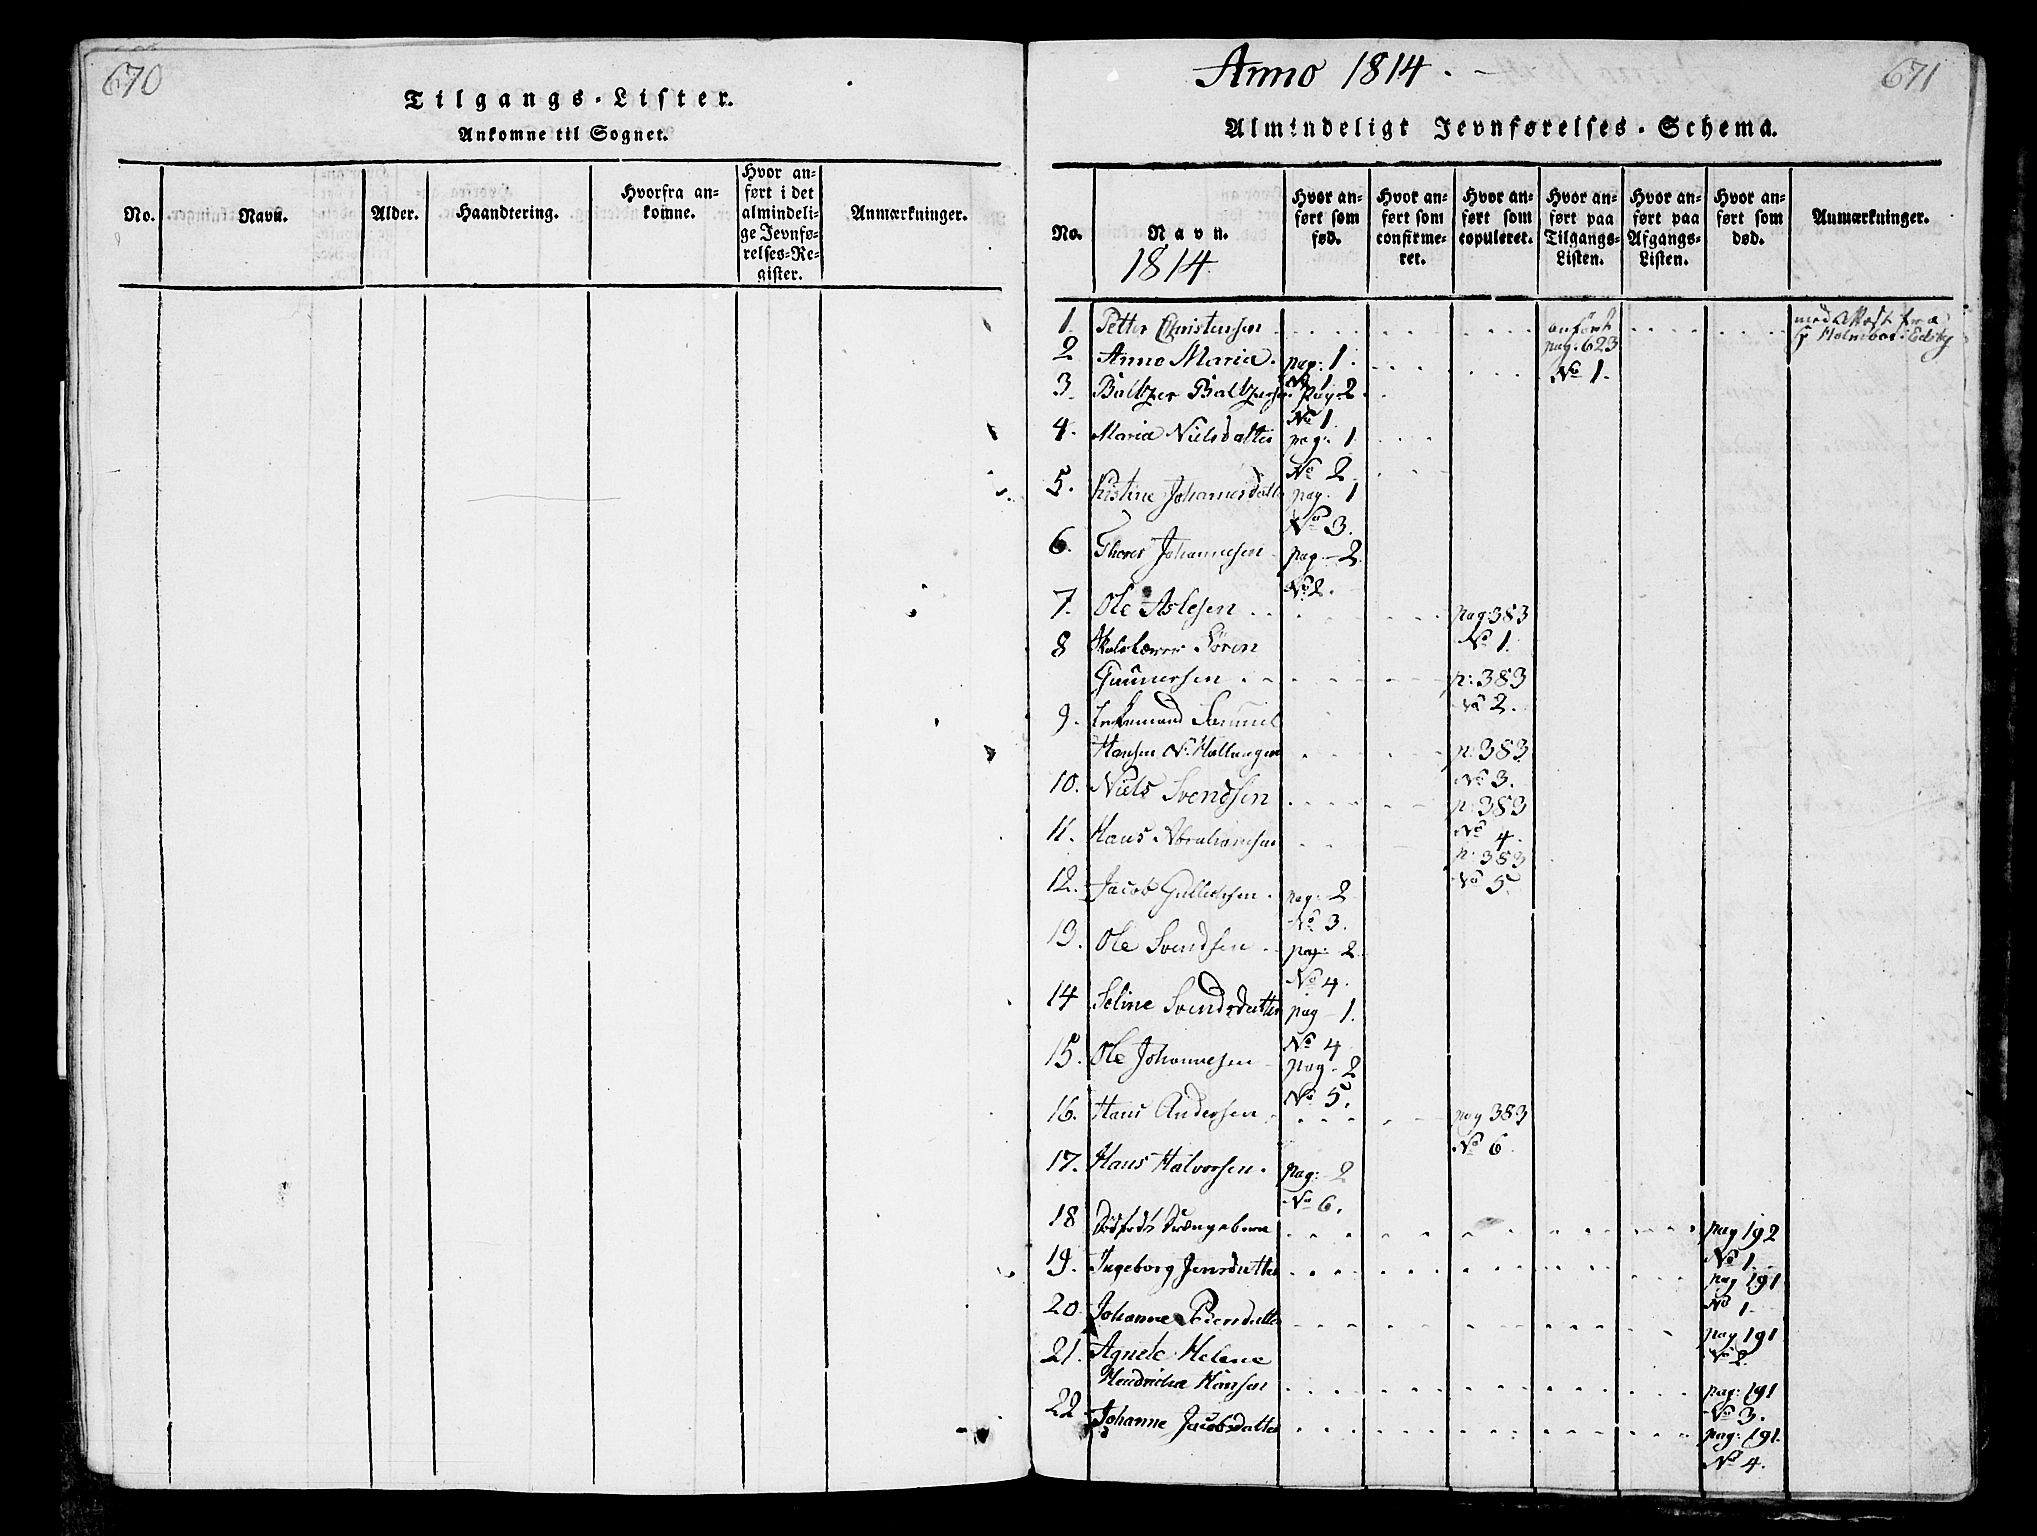 670
Tilgangs-Lister.
Ankomne til Sognet.
No.
Navn.
Alder.
Haandtering.
Hvorfra an-
komne.
Hvor an-
ført i det
almindeli-
ge Jevnfø-
relses-Re-
gister.
Anmærkninger.
Anno 1814.
671
Almindeligt Jevnførelses-Schema.
No.
Navn.
1814
Hvor an-
ført som
fød.
Hvor an-
ført som
confirme-
ret.
Hvor an-
ført som
copuleret.
Hvor an-
ført paa
Tilgangs-
Listen.
Hvor an-
ført paa
Afgangs-
Listen.
Hvor an-
ført som
død.
Anmærkninger.
1. Petter Christensen anført med Attest fra
pag. 623
No 1.
2 Anne Maria. pag: 1.
No 1
3. Baltzer Baltzersen pag. 2
No 1.
4. Maria Nielsdatter pag: 1
No 2
5. Kistine Johannesdatter pag. 1
No 3.
6. Thorer Johannesen pag. 2
No 2.
7. Ole Aslesen pag: 383
No 1.
8 Søren
Gunnersen p: 383
No 2.
9. Samuel
Hansen N. p. 383
No 3.
10. Niels Svendsen p: 383
No 4.
11. Hans Abrahamsen p: 383
No 5.
12. Jacob Gullichsen. pag: 2
No 3.
13. Ole Svendsen pag: 2
No 4.
14 Seline Svendsdatter pag 1.
No 4
15. Ole Johannesen pag. 2
No 5.
16. Hans Andersen pag 383
No 6.
17. Hans Halvorsen. pag: 2
No 6.
18 Drængebarn pag 192
No 1.
19. Ingeborg Jensdatter pag 191
No 1.
20. Johanne pag 191
No 2.
21. Agnete Helene
Hendricha Hansen pag: 191
No 3.
22 Johanne Jacobsdatter pag: 191.
No 4.